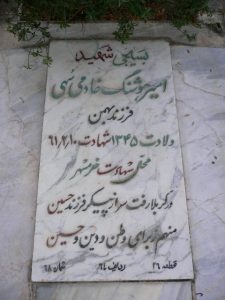 بسیجی شهید
امیرهوشنگ خادمی
فرزند بهمن
ولادت ۱۳۴۵ شهادت ۶۱/۲/۱۰
محل شهادت خرمشهر
در کربلا رفت سر از پیکر فرزند حسین
منهم برای وطن و دین و حسین
قطعه ۲۶ ردیف ۶۴ شماره ۶۸